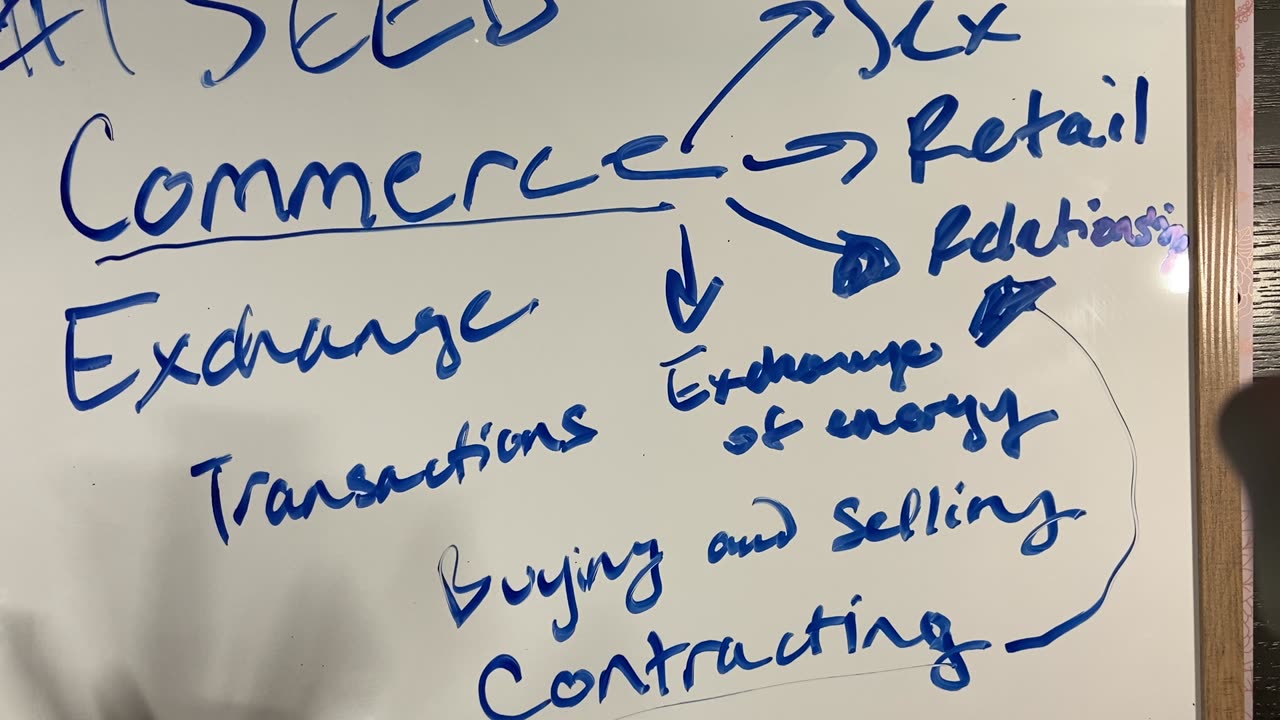 #1 SEED
Sex
Commerce
Retail
Relationship
Exchange
Exchange
of energy
Transactions
Buying and Selling
Contracting